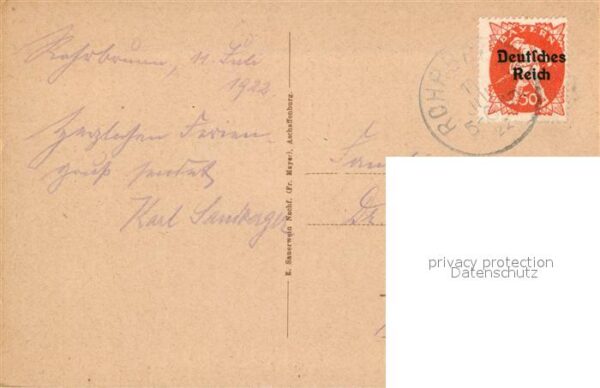 Rohrbrunn, 11. Juli
1922
Herzlichen Ferien-
gruß sendet
Karl
E. Sauerwein Nachf. (Fr. Mayer), Aschaffenburg.
BAYERN
Deutsches
Reich
50
ROHR
22
privacy protection
Datenschutz